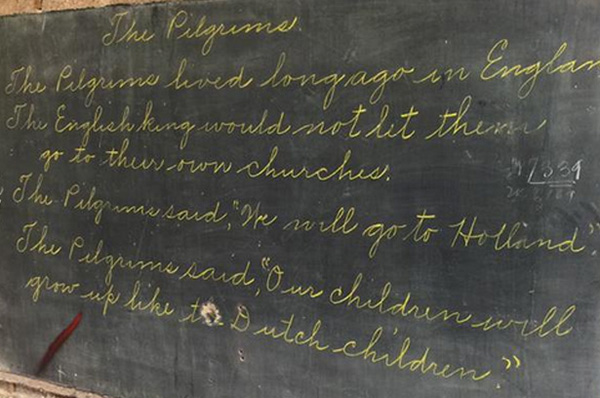 The Pilgrims.
The Pilgrims lived long ago in Englan
The English king would not let them
go to their own churches.
7339
The Pilgrims said, "We will go to Holland".
The Pilgrims said, "Our children will
grow up like Dutch children."